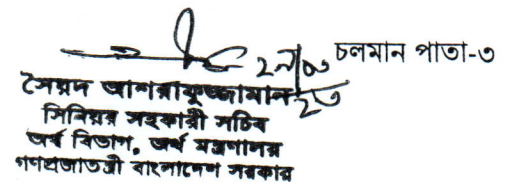 চলমান পাতা-৩
সৈয়দ আশরাফুজ্জামান
সিনিয়র সহকারী সচিব
অর্থ বিভাগ, অর্থ মন্ত্রণালয়
গণপ্রজাতন্ত্রী বাংলাদেশ সরকার